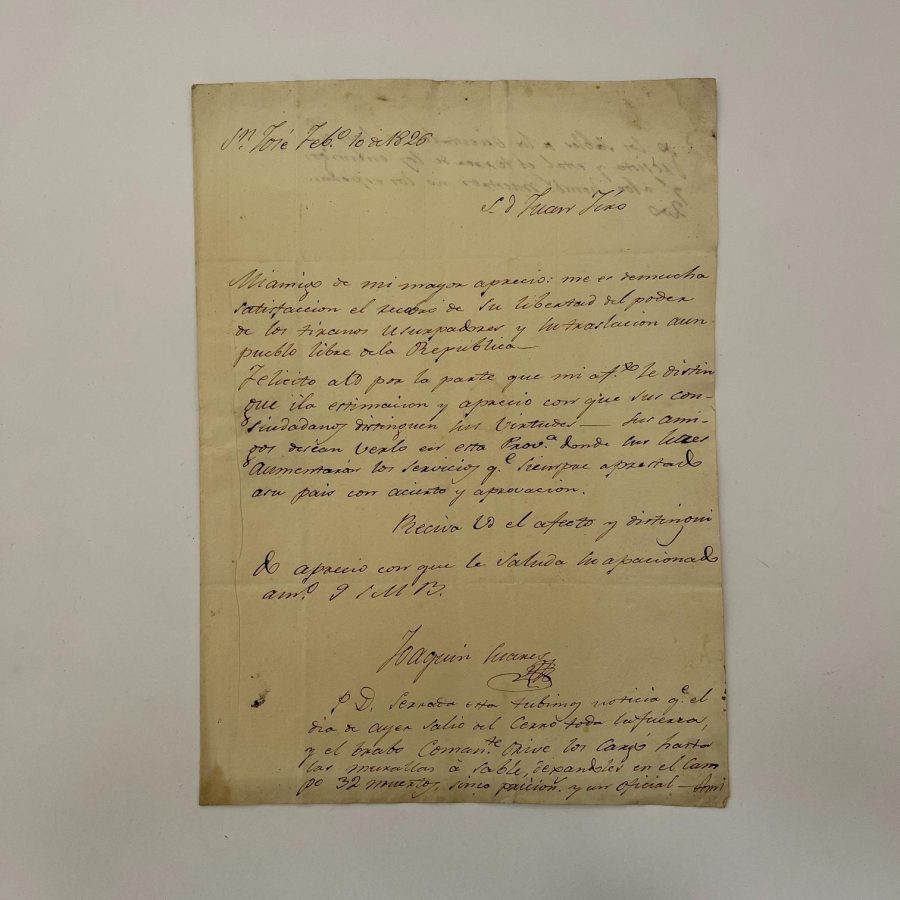 Sn José Febo 10 de 1826
S. d Juan Jiro
Mi amigo de mi mayor aprecio: me es demucha
satisfaccion el recivo de su libertad del poder
de los tiranos usurpadores y su traslacion aun
pueblo libre dela Republica—
Felicito a Ud por la parte que mi afto le distin
gue ila estimacion y aprecio con que sus con-
siudadanos distinguen sus virtudes— sus ami-
gos desean verlo en esta Prova donde sus luses
aumentaran los servicios qe siempre aprestado
asu pais con acierto y aprovacion.
Reciva Ud el afecto y distingui
do aprecio con que le saluda su apacionado
amo Q S M B.
Joaquin Suares
P. D. Serrada esta tubimos noticia qe el
dia de ayer salio del Cerro toda la fuersa,
y el brabo Comante Orive los cargó hasta
las murallas á sable, dejandoles en el Cam
po 32 muertos, sinco pricion. y un oficial—